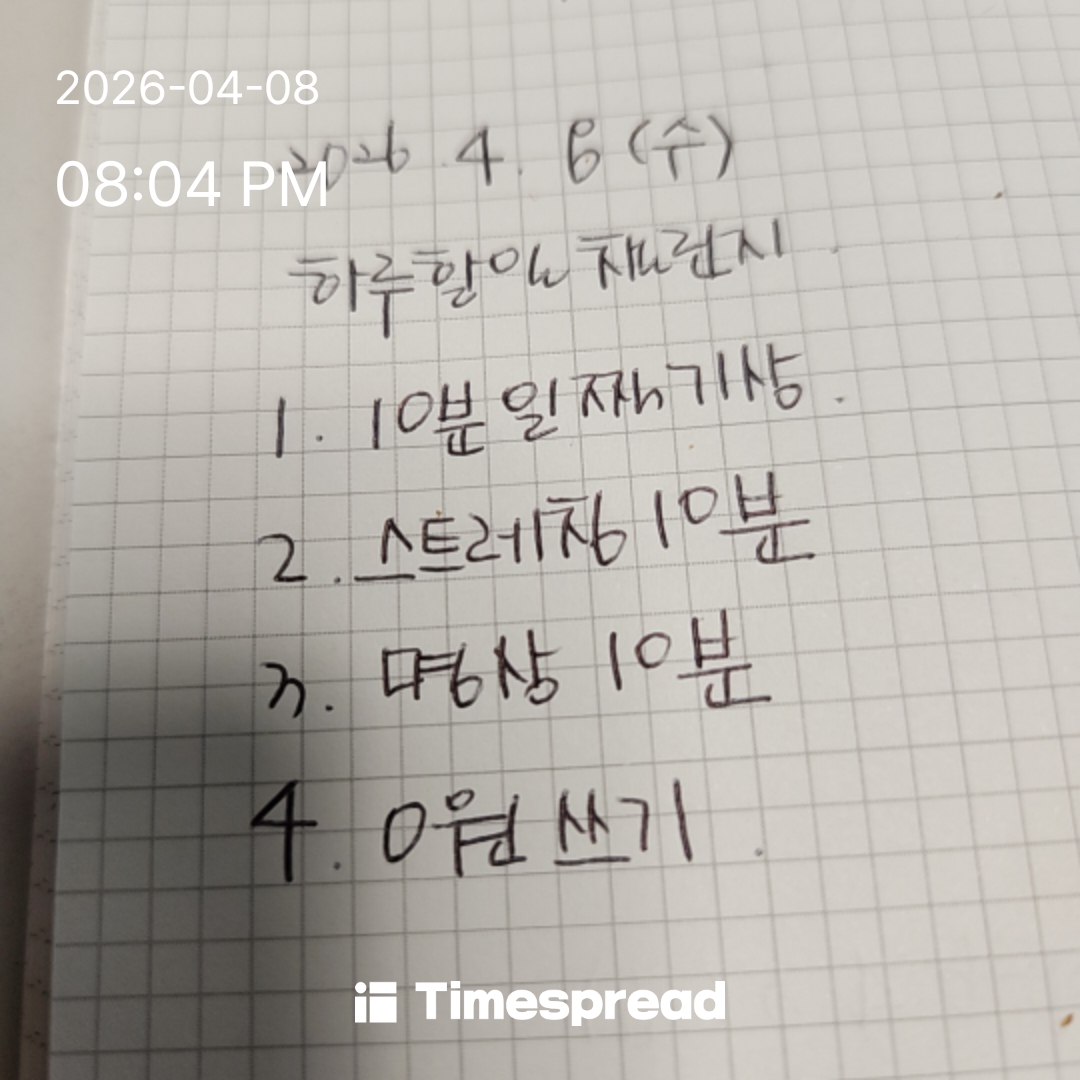 2026-04-08
08:04 PM
2026. 4. 8 (수)
하루할일 챌린지
1. 10분 일찍 기상.
2. 스트레칭 10분
3. 명상 10분
4. 0원 쓰기.
Timespread